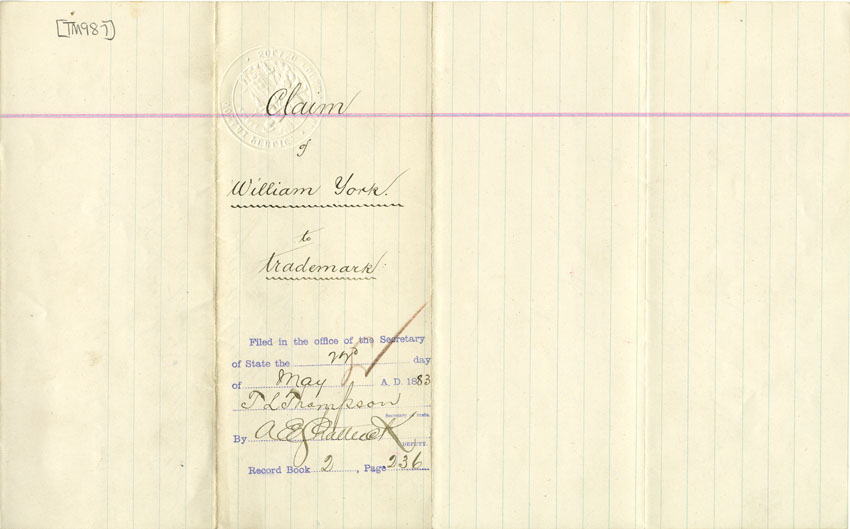 [TM987]
Claim
of
William York.
to
trademark.
Filed in the office of the Secretary
of State the day
of May A. D. 1883
T L Thompson
Secretary of State.
By A E Shattuck
DEPUTY.
Record Book 2, Page 236